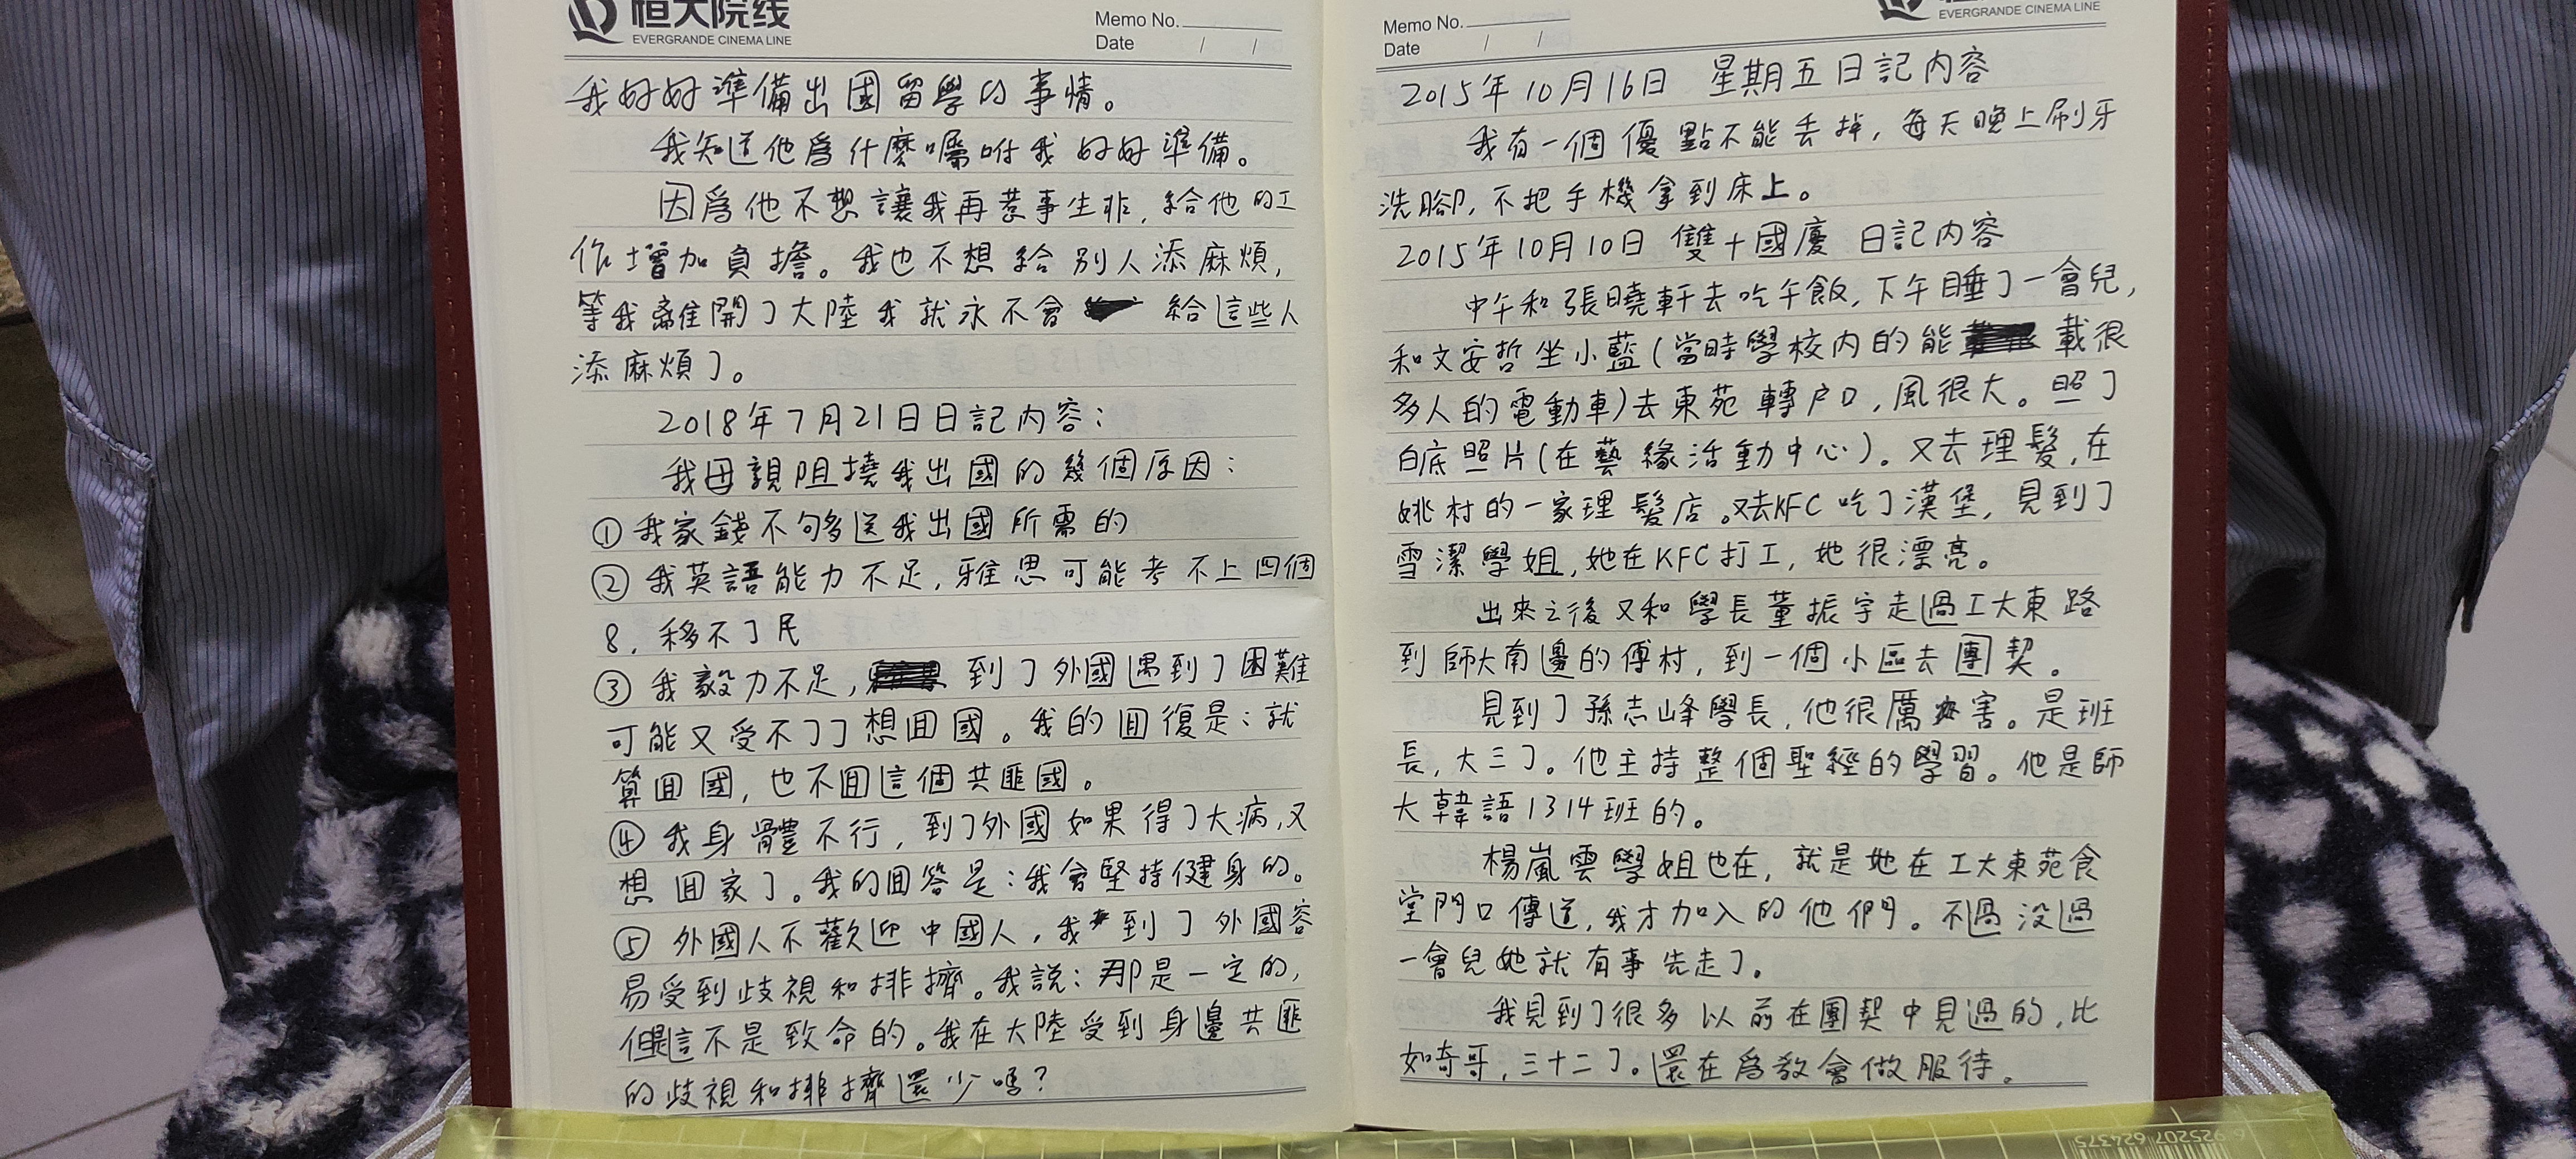 恒大院线
EVERGRANDE CINEMA LINE
Memo No.
Date / /
我好好準備出國留學的事情。
我知道他爲什麼囑咐我好好準備。
因爲他不想讓我再惹事生非,給他的工
作增加負擔。我也不想給別人添麻煩,
等我離開了大陸我就永不會給這些人
添麻煩了。
2018年7月21日日記内容:
我母親阻撓我出國的幾個原因:
①我家錢不夠送我出國所需的
②我英語能力不足,雅思可能考不上四個
8,移不了民
③我毅力不足,到了外國遇到了困難
可能又受不了了想回國。我的回復是:就
算回國,也不回這個共匪國。
④我身體不行,到了外國如果得了大病,又
想回家了。我的回答是:我會堅持健身的。
⑤外國人不歡迎中國人,我到了外國容
易受到歧視和排擠。我説:那是一定的,
但這不是致命的。我在大陸受到身邊共匪
的歧視和排擠還少嗎?
Memo No.
Date / /
EVERGRANDE CINEMA LINE
2015年10月16日 星期五日記内容
我有一個優點不能丢掉,每天晚上刷牙
洗腳,不把手機拿到床上。
2015年10月10日 雙十國慶 日記内容
中午和張曉軒去吃午飯,下午睡了一會兒,
和文安哲坐小藍(當時學校内的能載很
多人的電動車)去東苑轉户口,風很大。照了
白底照片(在藝緣活動中心)。又去理髮,在
姚村的一家理髮店。又去KFC吃了漢堡,見到了
雪潔學姐,她在KFC打工,她很漂亮。
出來之後又和學長董振宇走過工大東路
到師大南邊的傅村,到一個小區去團契。
見到了孫志峰學長,他很厲害。是班
長,大三了。他主持整個聖經的學習。他是師
大韓語1314班的。
楊嵐雲學姐也在,就是她在工大東苑食
堂門口傳道,我才加入的他們。不過没過
一會兒她就有事先走了。
我見到了很多以前在團契中見過的,比
如奇哥,三十二了。還在爲教會做服待。
6 925207 624375